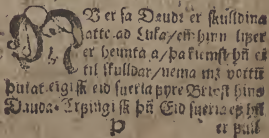 V er sa Daude er skulldina
atte ad Luka / eñ hinn lijfer
er heimta a / þa kiemst hñ ei
til skulldar / nema mz vottũ
Eigi sk eid sueria fyre Briost hins
Dauda. sk þũ Eid sueria ez hñ
þ er full